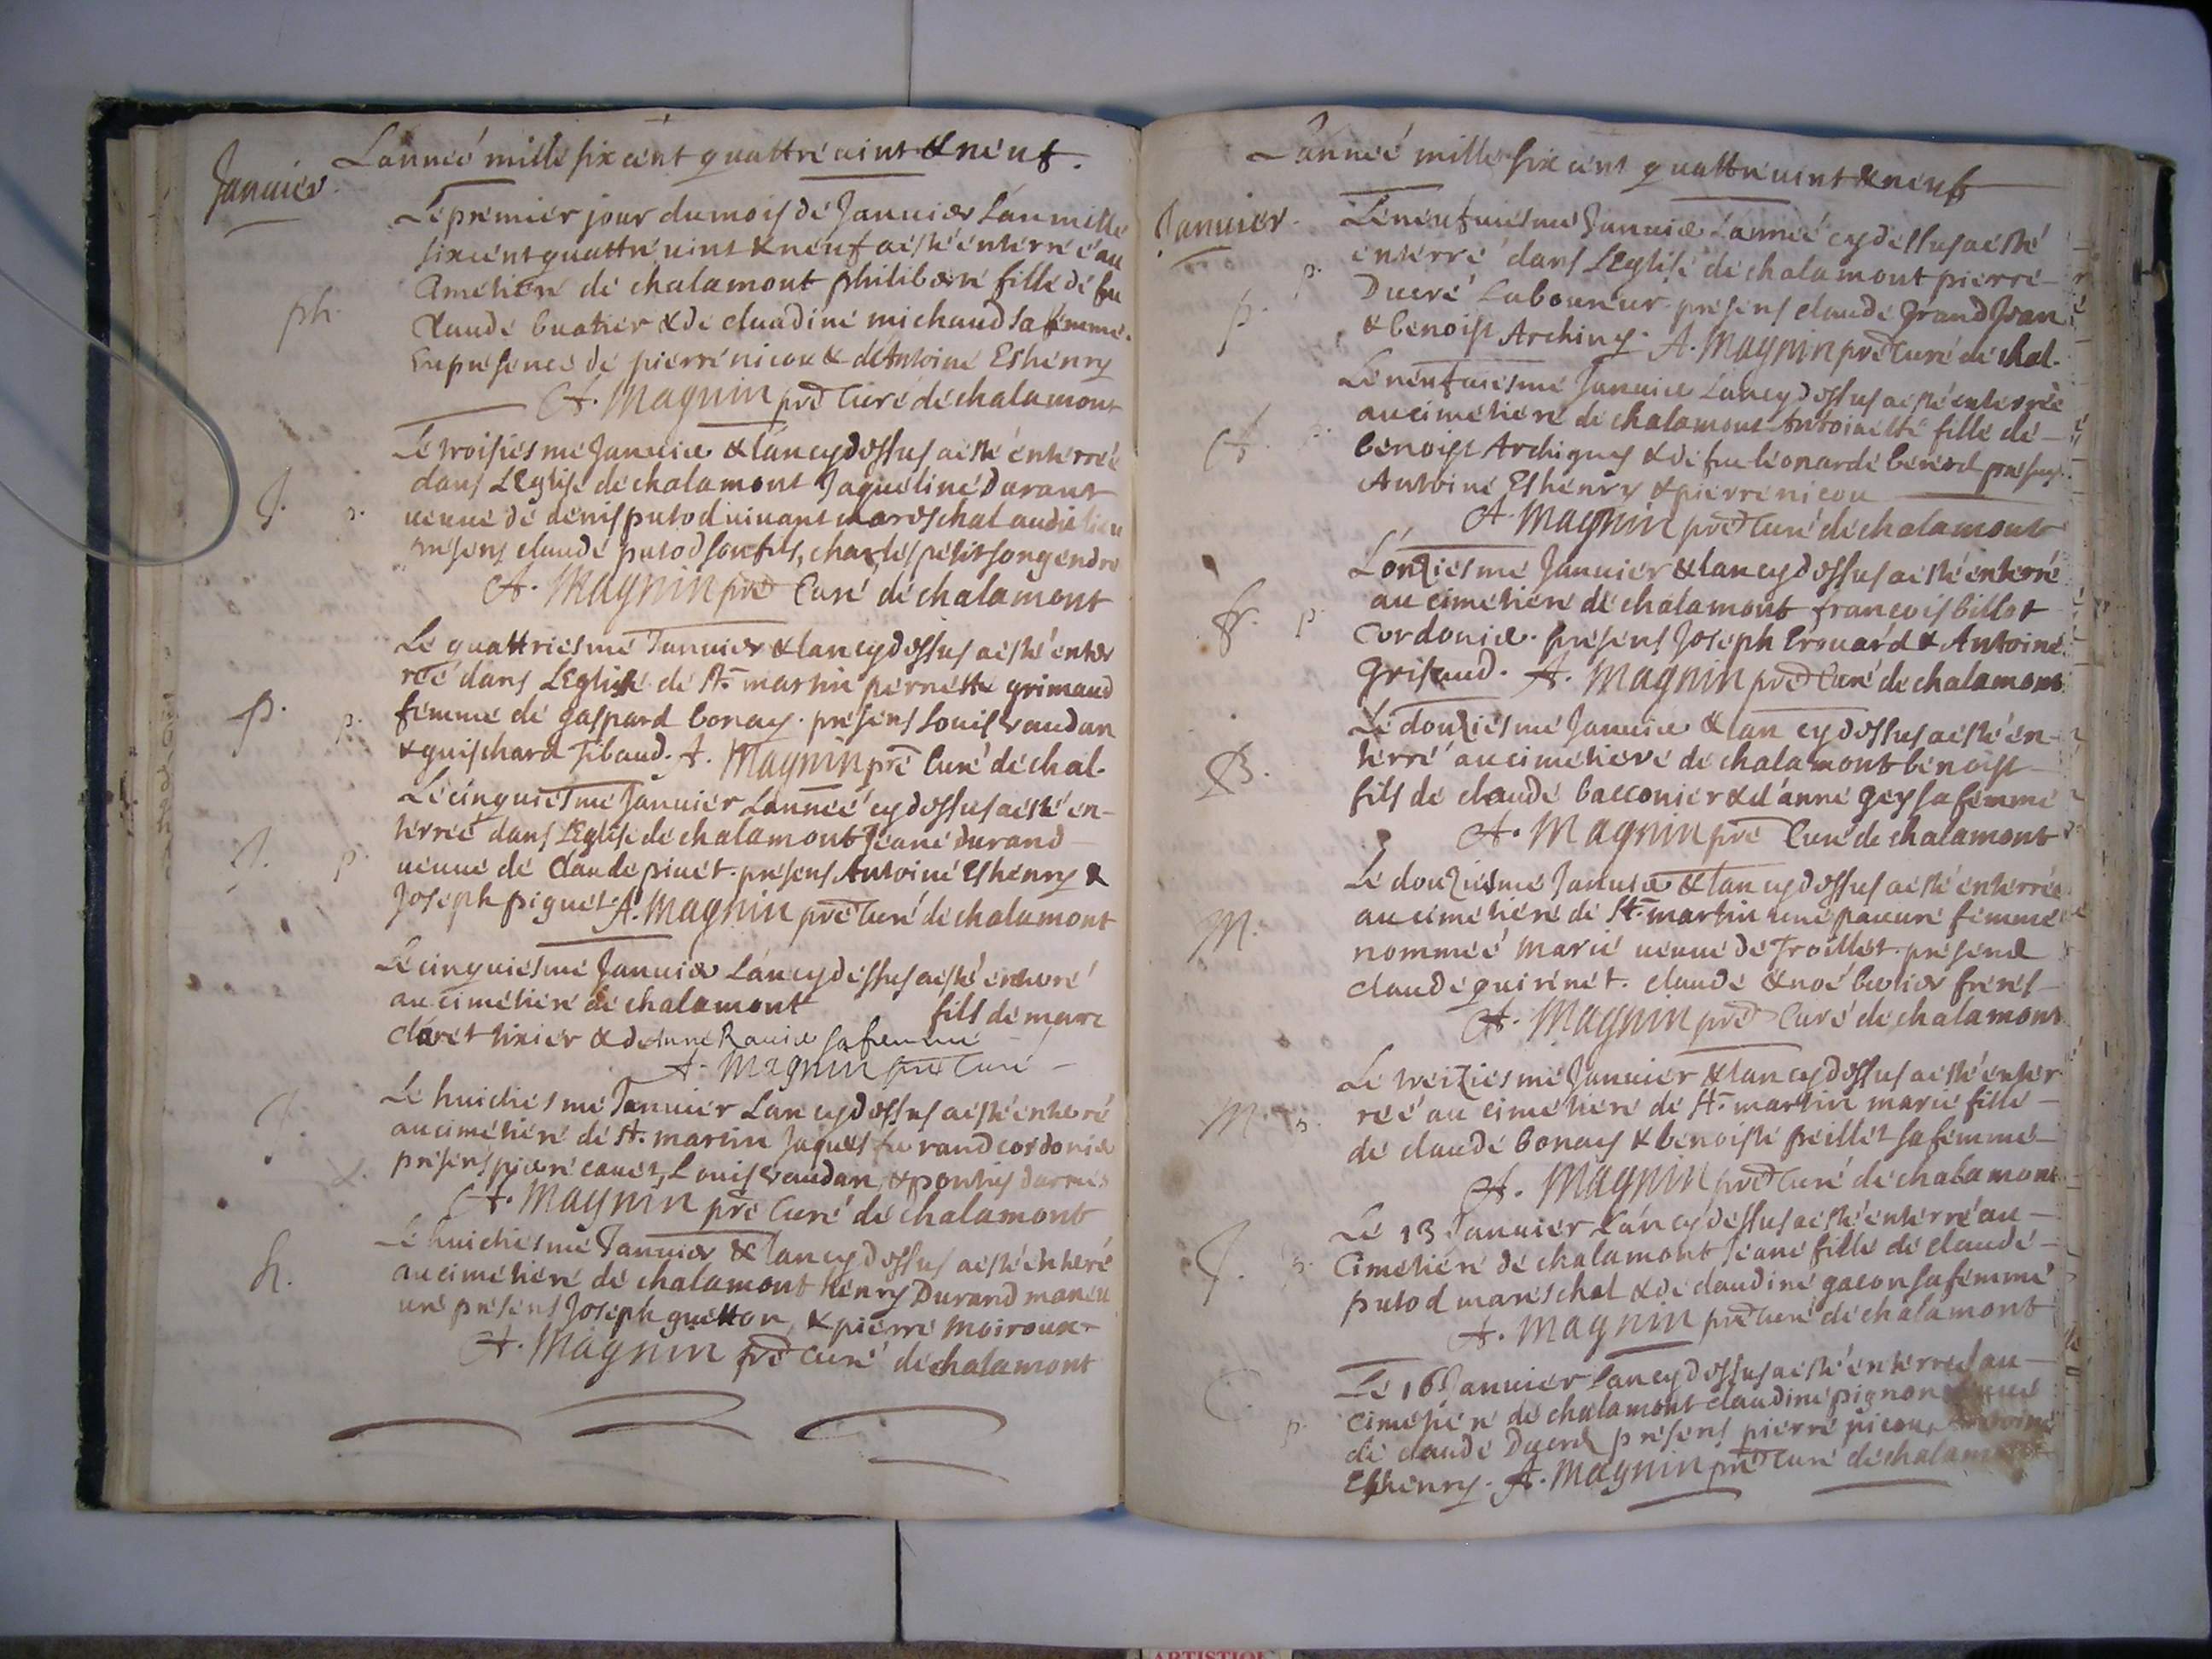 L'anneé mille six cent quattre uint & neuf.
Januier.
Le premier jour du mois de Januier L'an mille
six cent quattre uint & neuf a esté enterreé au
Cimetiere de chalamont philiberte fille de feu
Claude buatier & de claudine michaud sa femme.
En presence de pierre nicou & de Antoine Eshenry
ph.
A. Magnin pre Curé de chalamont
Le troisiesme Januier & l'an cy dessus a esté enterreé
dans L'Eglise de chalamont Jaqueline Durant
ueuue de denis putod uiuant mareschal audit lieu
J.
presens claude putod son fils, charles petit son gendre
A. Magnin pre Curé de chalamont
Le quattriesme Januier & l'an cy dessus a esté enter
reé dans L'Eglise de St. martin pernette grimaud
femme de gaspard bonay. presens Louis Vaudan
p.
p.
& guischard Tibaud. A. Magnin pre Curé de chal.
Le cinquiesme Januier L'anneé cy dessus a esté en-
terreé dans L'Eglise de chalamont Jeane Durand
ueuue de Claude piuet. presens Antoine Eshenry &
J.
p.
Joseph piguet. A. Magnin pre Curé de chalamont
Le cinquiesme Januier L'an cy dessus a esté enterré
au cimetiere de chalamont fils de marc
claret tixier & de Anne Rauier sa femme
A. Magnin pre Curé
Le huictiesme Januier L'an cy dessus a esté enterré
au cimetiere de St. martin Jaques durand cordonier
J.
presens pierre cauet, Louis Vaudan, & pontus
A. Magnin pre Curé de chalamont
Le huictiesme Januier & l'an cy dessus a esté enterré
au cimetiere de chalamont henry Durand maneu
h.
ure presens Joseph guetton, & pierre Moiroux
A. Magnin pre Curé de chalamont
L'anneé mille six cent quattre uint & neuf
Januier.
Le neufuiesme Januier L'anneé cy dessus a esté
enterré dans L'Eglise de chalamont pierre
p.
Ducré Laboureur presens claude grand Jean
p.
& benoist Archiny. A. Magnin pre Curé de chal.
Le neufuiesme Januier L'an cy dessus a esté enterreé
au cimetiere de chalamont Antoinette fille de
A.
p.
benoist Archigny & de feu leonarde bererd presens
Antoine Eshenry & pierre nicou
A. Magnin pre Curé de chalamont
L'onziesme Januier & l'an cy dessus a esté enterré
au cimetiere de chalamont francois billot
fr.
p.
Cordonier. presens Joseph Erouard & Antoine
Grisaud. A. Magnin pre Curé de chalamont
Le douziesme Januier & l'an cy dessus a esté en-
terré au cimetiere de chalamont benoist
B.
fils de claude bacconier & d'anne gey sa femme
A. Magnin pre Curé de chalamont
Le douziesme Januier & l'an cy dessus a esté enterreé
au cimetiere de St. martin une pauure femme
M.
nommeé Marie ueuue de Troillet. presens
claude guirinet. claude & noé butier freres
A. Magnin pre Curé de chalamont
Le treiziesme Januier & l'an cy dessus a esté enter
reé au cimetiere de St. martin marie fille
M.
de claude bonay & benoiste peillet sa femme
A. Magnin pre Curé de chalamont
Le 13 Januier L'an cy dessus a esté enterré au
J.
Cimetiere de chalamont Jeane fille de claude
putod mareschal & de claudine gacon sa femme
A. Magnin pre Curé de chalamont
Le 16 Januier L'an cy dessus a esté enterreé au
C.
cimetiere de chalamont claudine pignon ueuue
p.
de claude presens pierre nicou, Antoine
Eshenry. A. Magnin pre Curé de chalamont
ARTISTIQUE